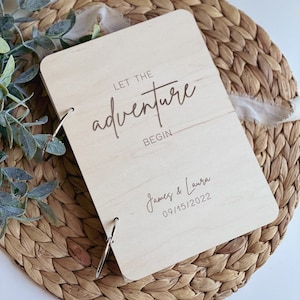 LET THE
adventure
BEGIN
James & Laura
09/15/2022